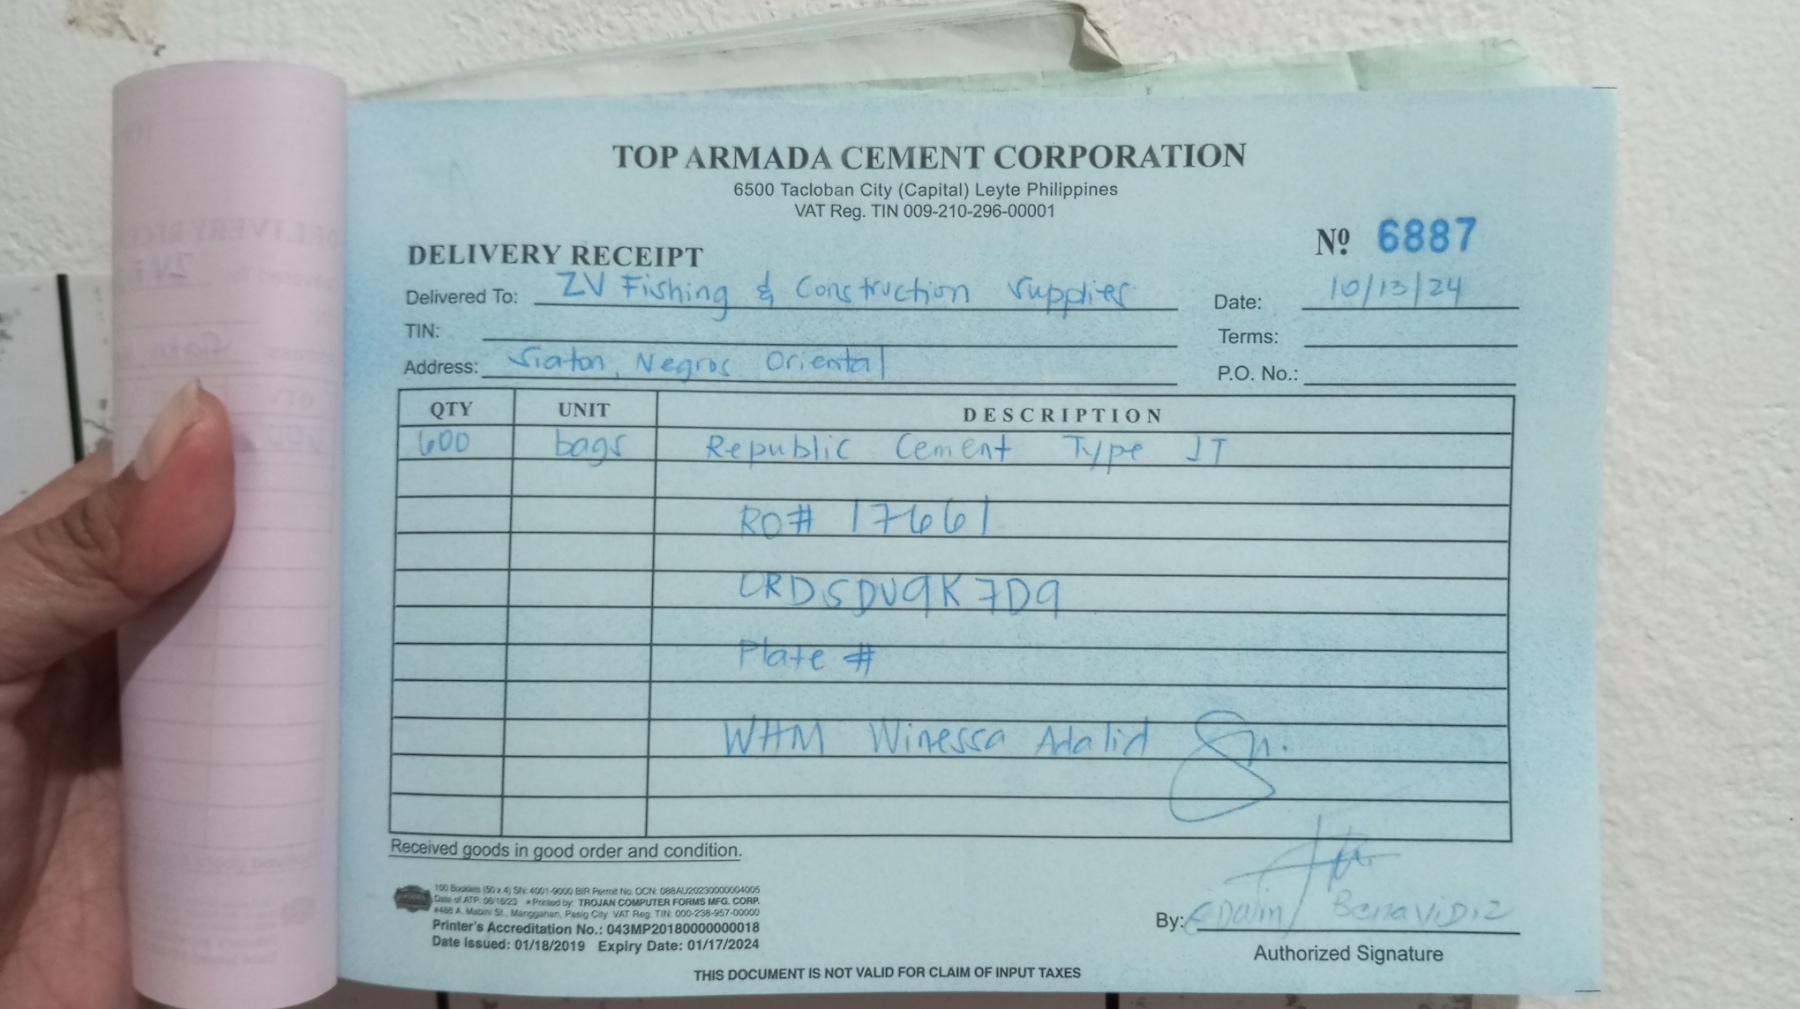 TOP ARMADA CEMENT CORPORATION
6500 Tacloban City (Capital) Leyte Philippines
VAT Reg. TIN 009-210-296-00001
Nº 6887
DELIVERY RECEIPT
Delivered To: ZV Fishing & Construction Supplies Date: 10/13/24
TIN: Terms:
Address: Siaton, Negros Oriental P.O. No.:
QTY UNIT DESCRIPTION
600 bags Republic Cement Type 1T
RO# 17661
CRDSDV9K7D9
Plate #
WHM Winessa Adalid
Received goods in good order and condition.
100 Booklets (50 x 4) SN: 4001-9000 BIR Permit No. OCN: 088AU20230000004005
Date of ATP: 06/16/23 *Printed by: TROJAN COMPUTER FORMS MFG. CORP.
#466 A. Mabini St., Manggahan, Pasig City VAT Reg. TIN: 000-238-957-00000
Printer's Accreditation No.: 043MP20180000000018
Date Issued: 01/18/2019 Expiry Date: 01/17/2024
By: Edwin Benavidiz
Authorized Signature
THIS DOCUMENT IS NOT VALID FOR CLAIM OF INPUT TAXES